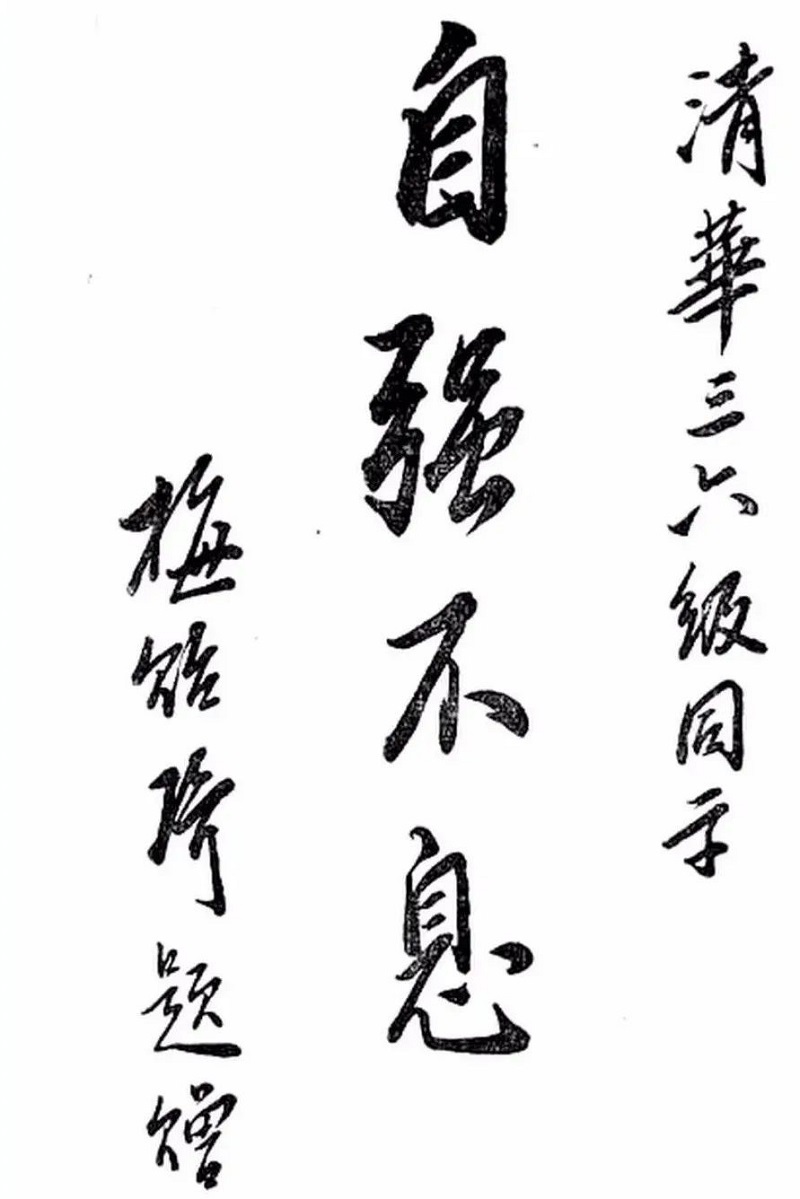 清華三六級同学
自强不息
梅貽琦題贈